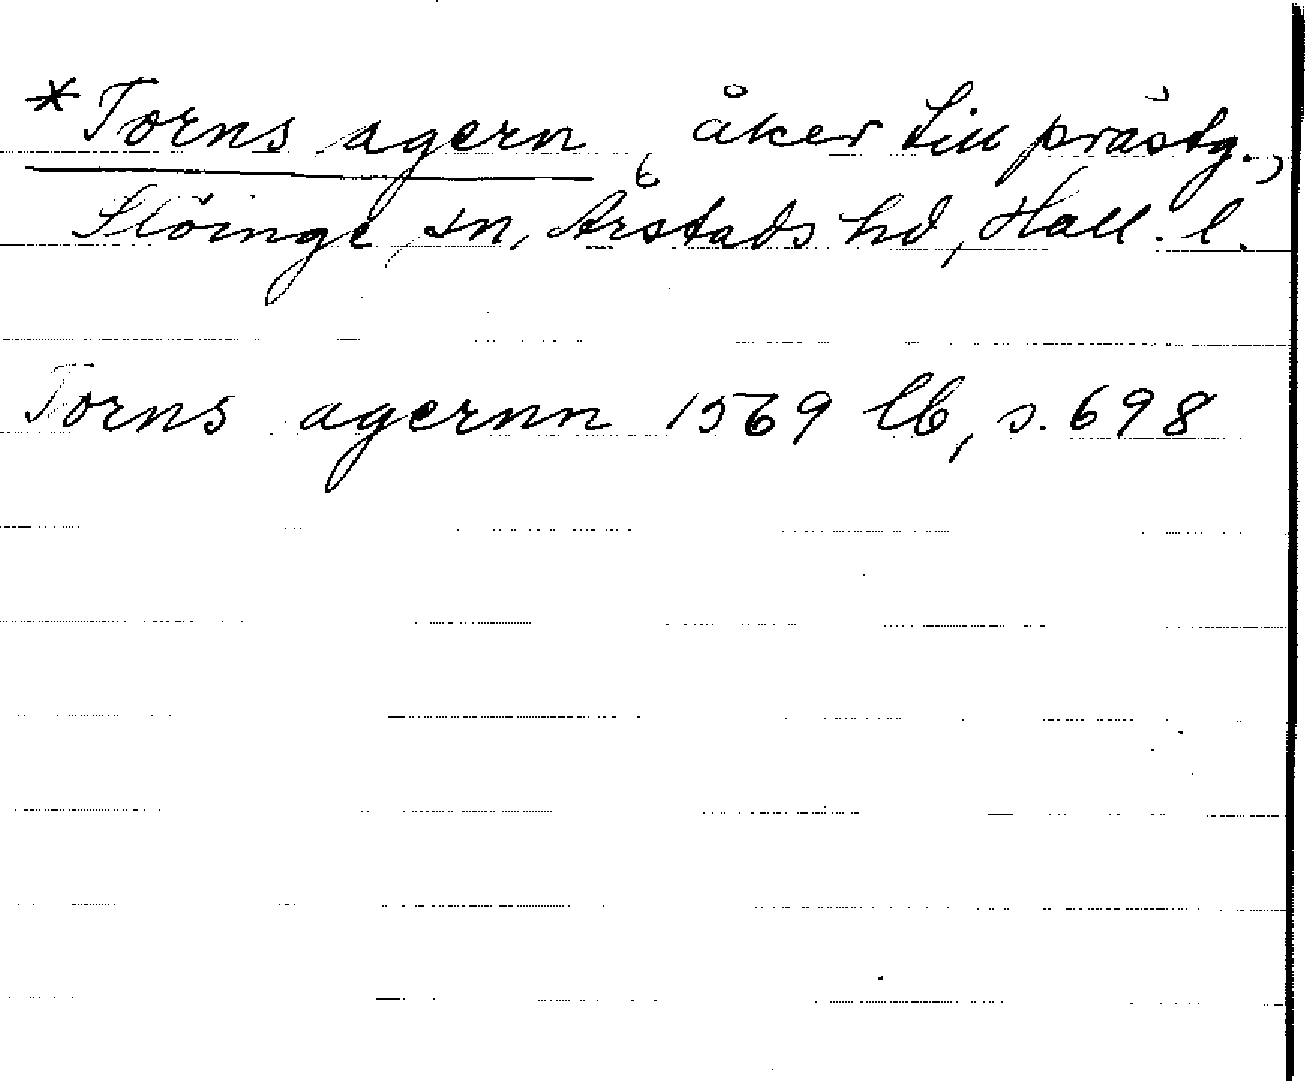 *Torns agern, åker till prästg.,
Slöinge sn, Årstads hd, Hall. l.
Torns agernn 1569 lb, s. 698